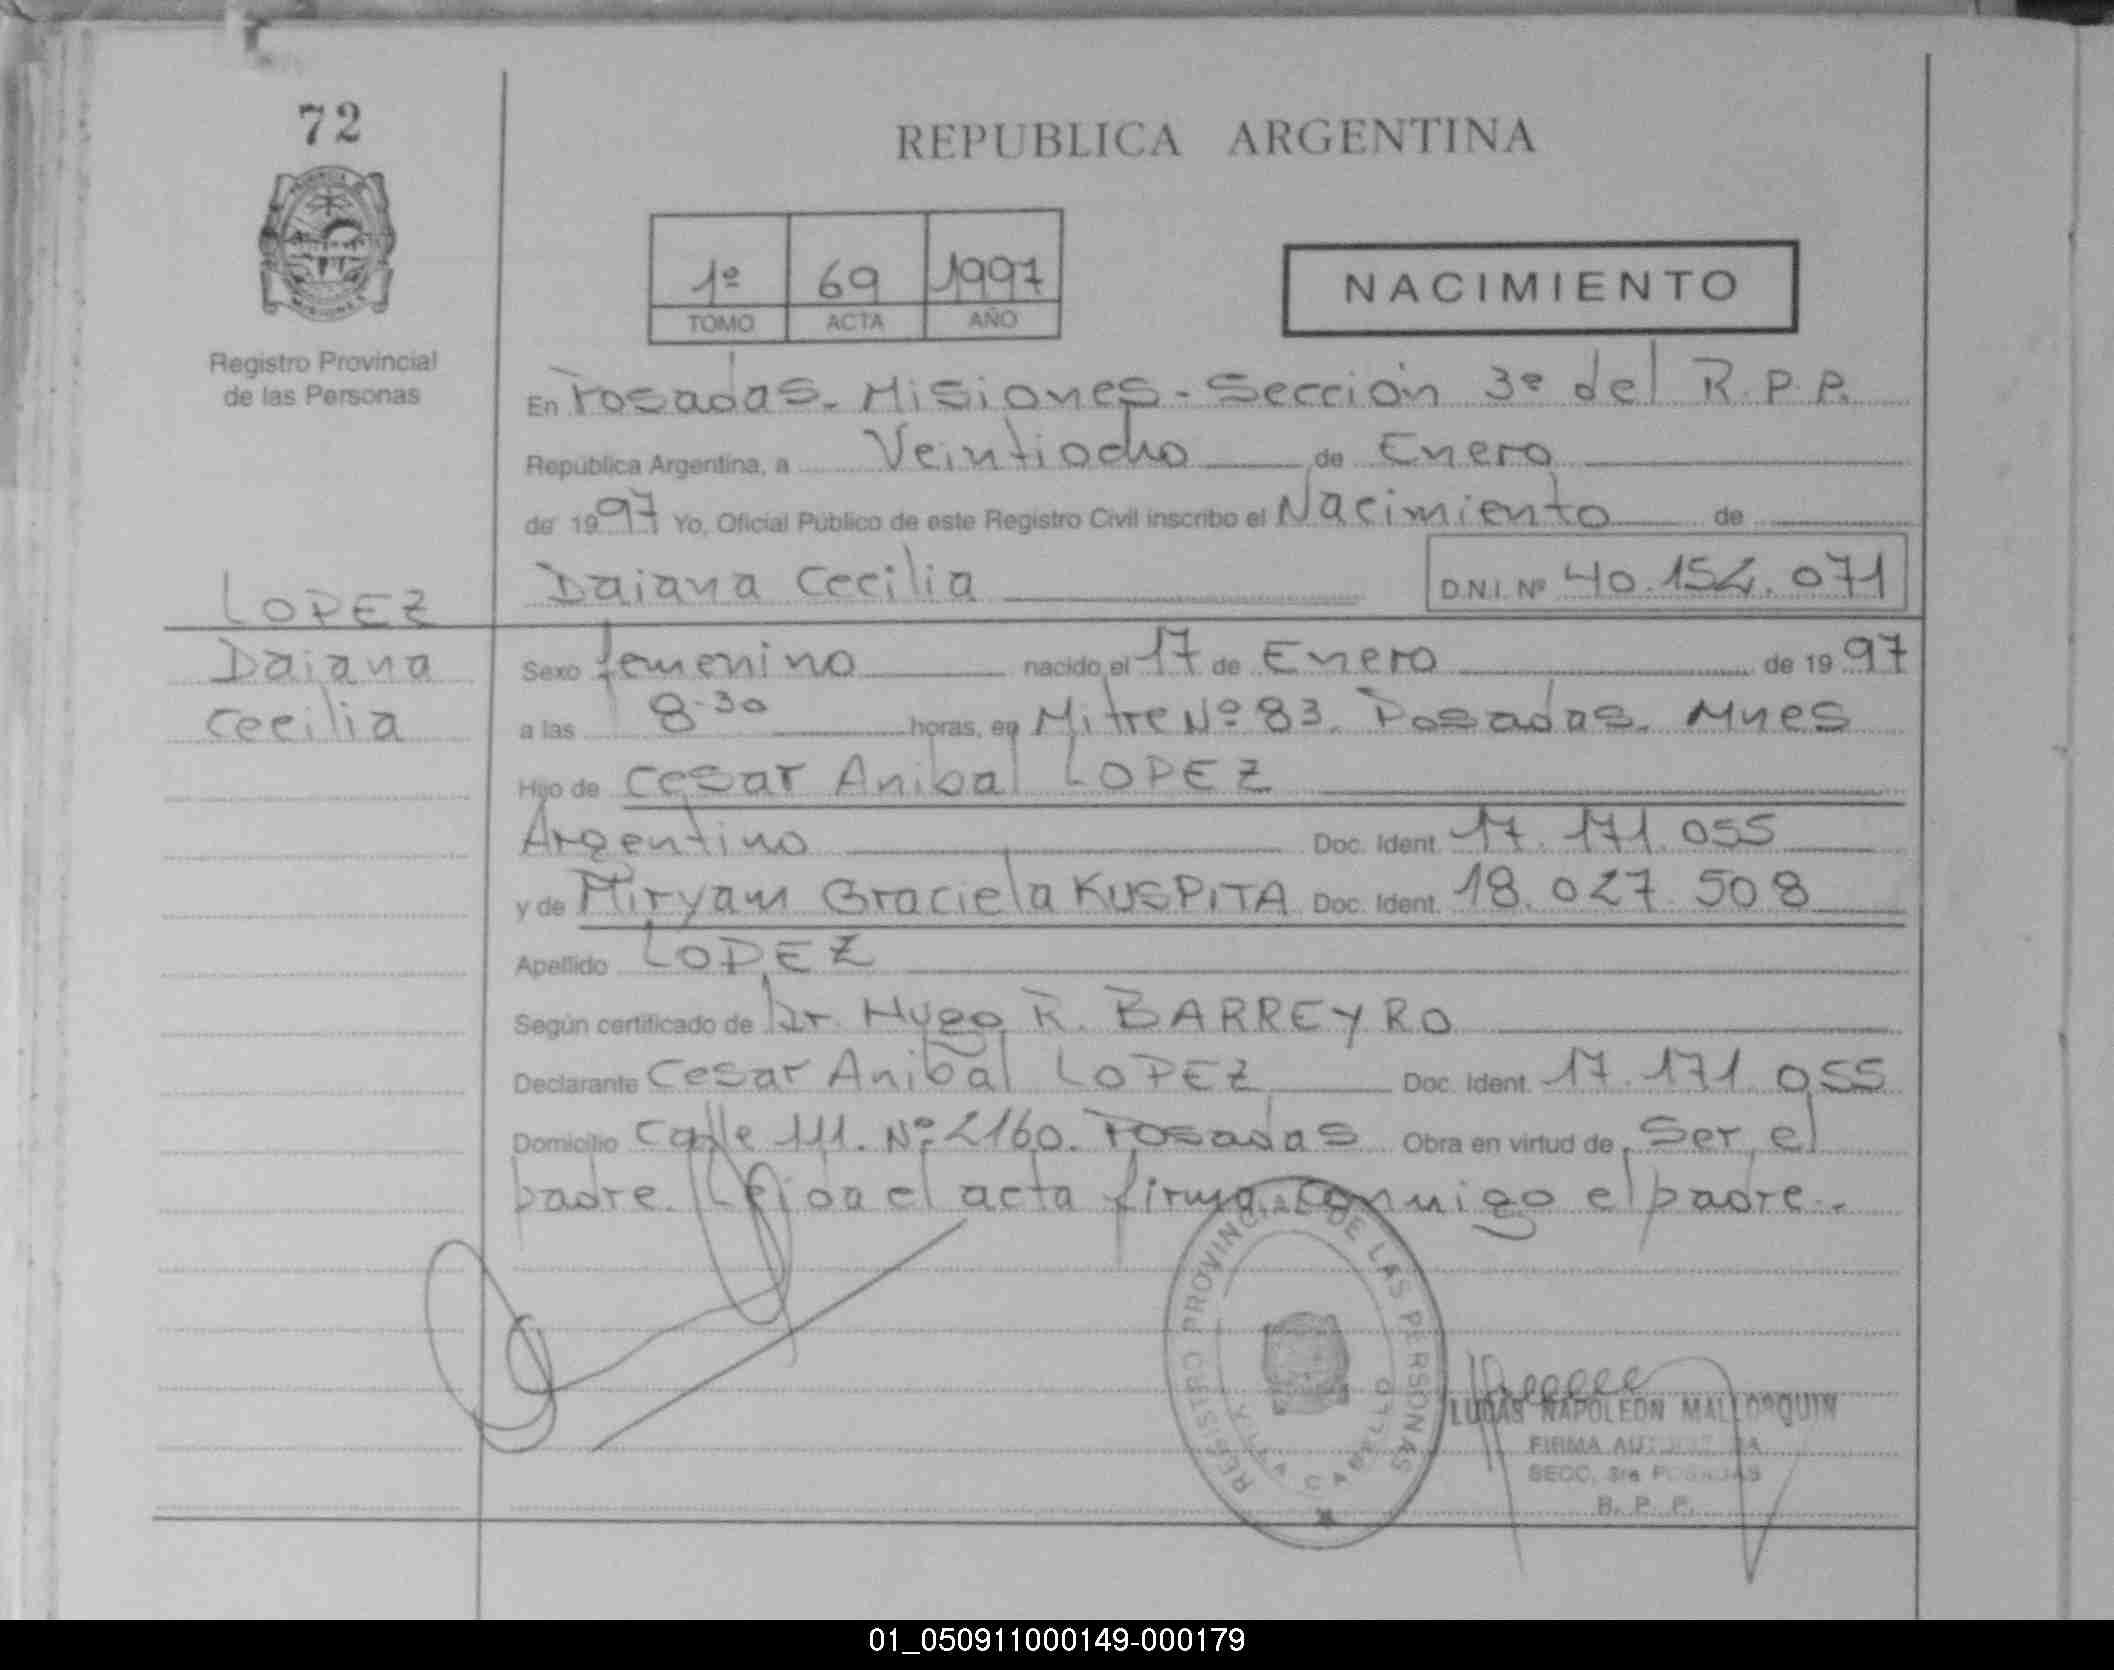 72
REPUBLICA ARGENTINA
1º 69 1997
TOMO ACTA AÑO
NACIMIENTO
Registro Provincial
de las Personas
En Posadas. Misiones - Sección 3º del R.P.P.
República Argentina, a Veintiocho de Enero
de 1997 Yo, Oficial Público de este Registro Civil inscribo el Nacimiento de
Daiana Cecilia D.N.I. Nº 40.154.071
LOPEZ
Daiana
Cecilia
Sexo femenino nacido el 17 de Enero de 1997
a las 8.30 horas, en Mitre Nº 83. Posadas. Mnes
Hijo de Cesar Anibal LOPEZ
Argentino Doc. Ident. 17.171.055
y de Miryam Graciela KUSPITA Doc. Ident. 18.027.508
Apellido LOPEZ
Según certificado de Dr. Hugo R. BARREYRO
Declarante Cesar Anibal LOPEZ Doc. Ident. 17.171.055
Domicilio Calle 111. Nº 2160. Posadas Obra en virtud de Ser el
padre. Leida el acta firma conmigo el padre.-
REGISTRO PROVINCIAL DE LAS PERSONAS
VILLA CABELLO
LUCAS NAPOLEON MALLORQUIN
FIRMA AUTORIZADA
SECC. 3ra POSADAS
R. P. P.
01_050911000149-000179